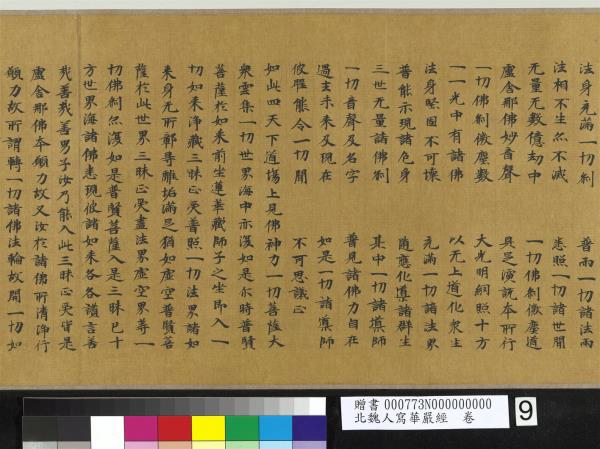 法身充滿一切刹　普雨一切諸法雨
法相不生亦不滅　悉照一切諸世間
无量无數億劫中　一切佛刹微塵道
盧舍那佛妙音聲　具足演說本所行
一切佛刹微塵數　大光明網照十方
一一光中有諸佛　以无上道化衆生
法身堅固不可壞　充滿一切諸法界
普能示現諸色身　隨應化導諸群生
三世无量諸佛刹　其中一切諸導師
一切音聲及名字　普見諸佛力自在
過去未來及現在　如是一切諸導師
彼能令一切聞　不可思議正
如此四天下道場上見佛神力一切菩薩大
衆雲集一切世界海中亦復如是尒時普賢
菩薩於如來前坐蓮華藏師子之坐即入一
切如來淨藏三昧正受普照一切法界諸如
來身无所鄣导離垢滿足猶如虛空普賢菩
薩於此世界三昧正受盡法界虛空界等一
切佛刹亦復如是普賢菩薩入是三昧已十
方世界海諸佛悉現彼諸如來各各讚言善
哉善哉善男子汝乃能入此三昧正受皆是
盧舍那佛本願力故又汝於諸佛所清淨行
願力故所謂轉一切諸佛法輪故開一切如
贈書 000773N000000000
北魏人寫華嚴經　卷
9